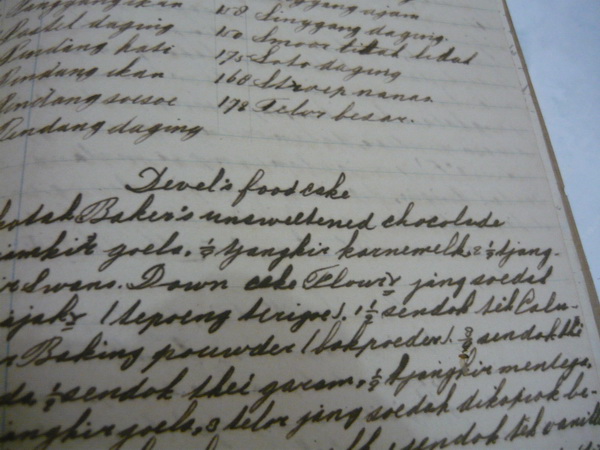 158 Singgang daging
Pastel daging 150
Rendang hati 175 Soto daging
Rendang ikan 168 Stroop nanas
Rendang soesoe 172 Telor besar.
Rendang daging
Devel's foodcake
kotak Baker's unsweetened chocolade
goela, 1/2 tjangkir karnemelk, 2 1/2 tjang-
ir Swans. Down cake Flour jang soedah
ajak (tepoeng trigoe), 1 1/2 sendok teh Calu-
Baking pouwder (bakpoeder), 3/4 sendok thi
da, 1/2 sendok thei garam, 1/2 tjangkir mentega,
angkir goela, 3 telor jang soedah dikoprok be-
sendok teh vanille